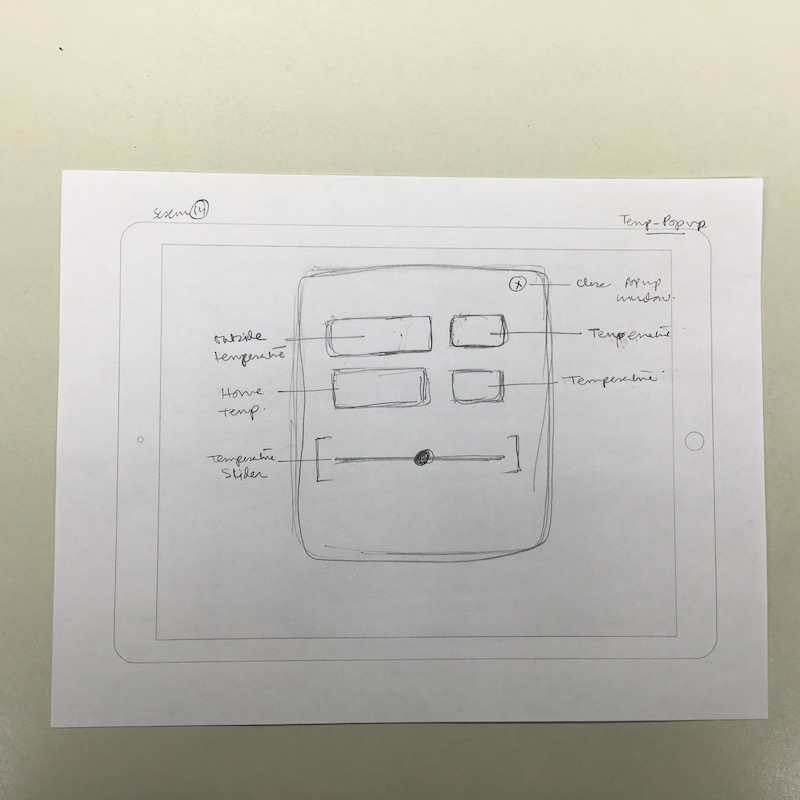 Screen 14
Temp-Popup
x
Close Popup
window.
outside
temperature
Temperature
Home
temp.
Temperature
Temperature
Slider